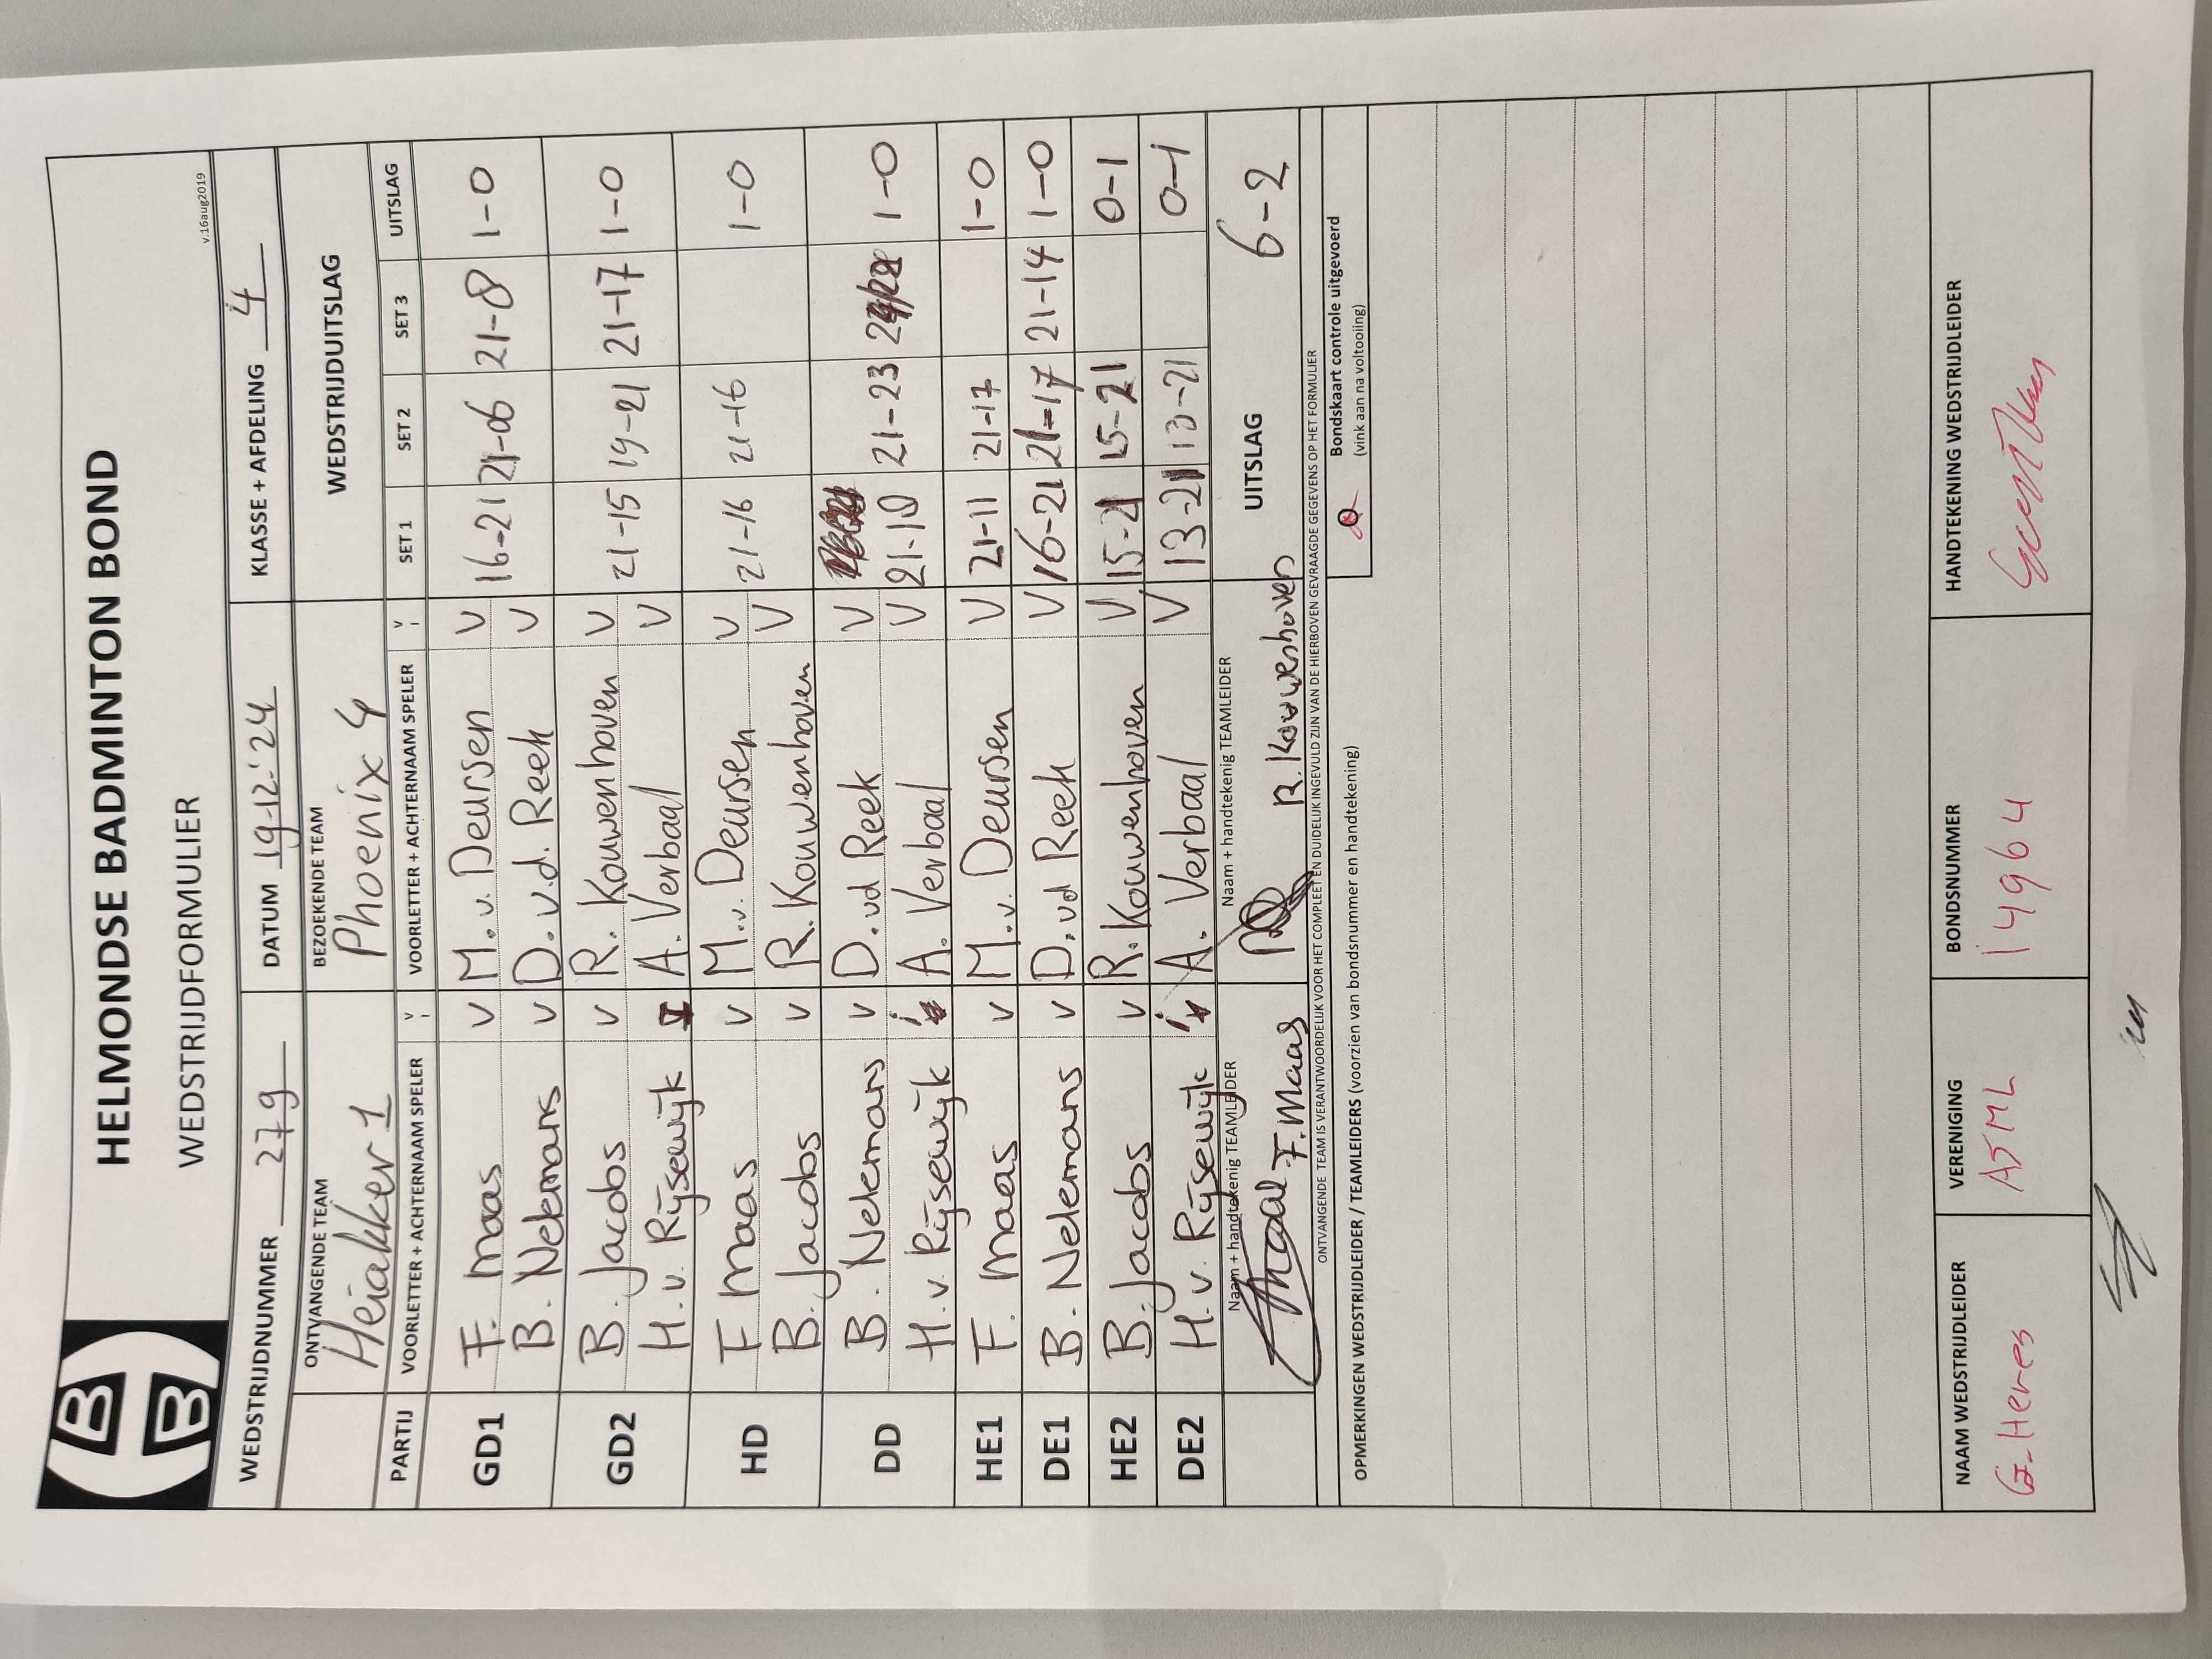 HELMONDSE BADMINTON BOND
WEDSTRIJDFORMULIER
v.16aug2019
WEDSTRIJDNUMMER 279 DATUM 19-12-'24 KLASSE + AFDELING 4
ONTVANGENDE TEAM BEZOEKENDE TEAM WEDSTRIJDUITSLAG
Heiakker 1 Phoenix 4
PARTIJ VOORLETTER + ACHTERNAAM SPELER V I VOORLETTER + ACHTERNAAM SPELER V I SET 1 SET 2 SET 3 UITSLAG
GD1 F. Maas V M. v. Deursen V 16-21 21-06 21-8 1-0
B. Nelemans V D. v.d. Reek V
GD2 B. Jacobs V R. Kouwenhoven V 21-15 19-21 21-17 1-0
H. v. Rijsewijk A. Verbaal V
HD F. Maas V M. v. Deursen V 21-16 21-16 1-0
B. Jacobs V R. Kouwenhoven V
DD B. Nelemans V D. vd Reek V 21-10 21-23 1-0
H. v Rijsewijk i A. Verbaal V
HE1 F. Maas V M. v. Deursen V 21-11 21-17 1-0
DE1 B. Nelemans V D. vd Reek V 16-21 21-17 21-14 1-0
HE2 B. Jacobs V R. Kouwenhoven V 15-21 15-21 0-1
DE2 H. v. Rijsewijk i A. Verbaal V 13-21 13-21 0-1
Naam + handtekenig TEAMLEIDER Naam + handtekenig TEAMLEIDER UITSLAG 6-2
F. Maas R. Kouwenhoven
ONTVANGENDE TEAM IS VERANTWOORDELIJK VOOR HET COMPLEET EN DUIDELIJK INGEVULD ZIJN VAN DE HIERBOVEN GEVRAAGDE GEGEVENS OP HET FORMULIER
OPMERKINGEN WEDSTRIJDLEIDER / TEAMLEIDERS (voorzien van bondsnummer en handtekening)
Bondskaart controle uitgevoerd
(vink aan na voltooiing)
NAAM WEDSTRIJDLEIDER VERENIGING BONDSNUMMER HANDTEKENING WEDSTRIJDLEIDER
G. Heres ASML 14964